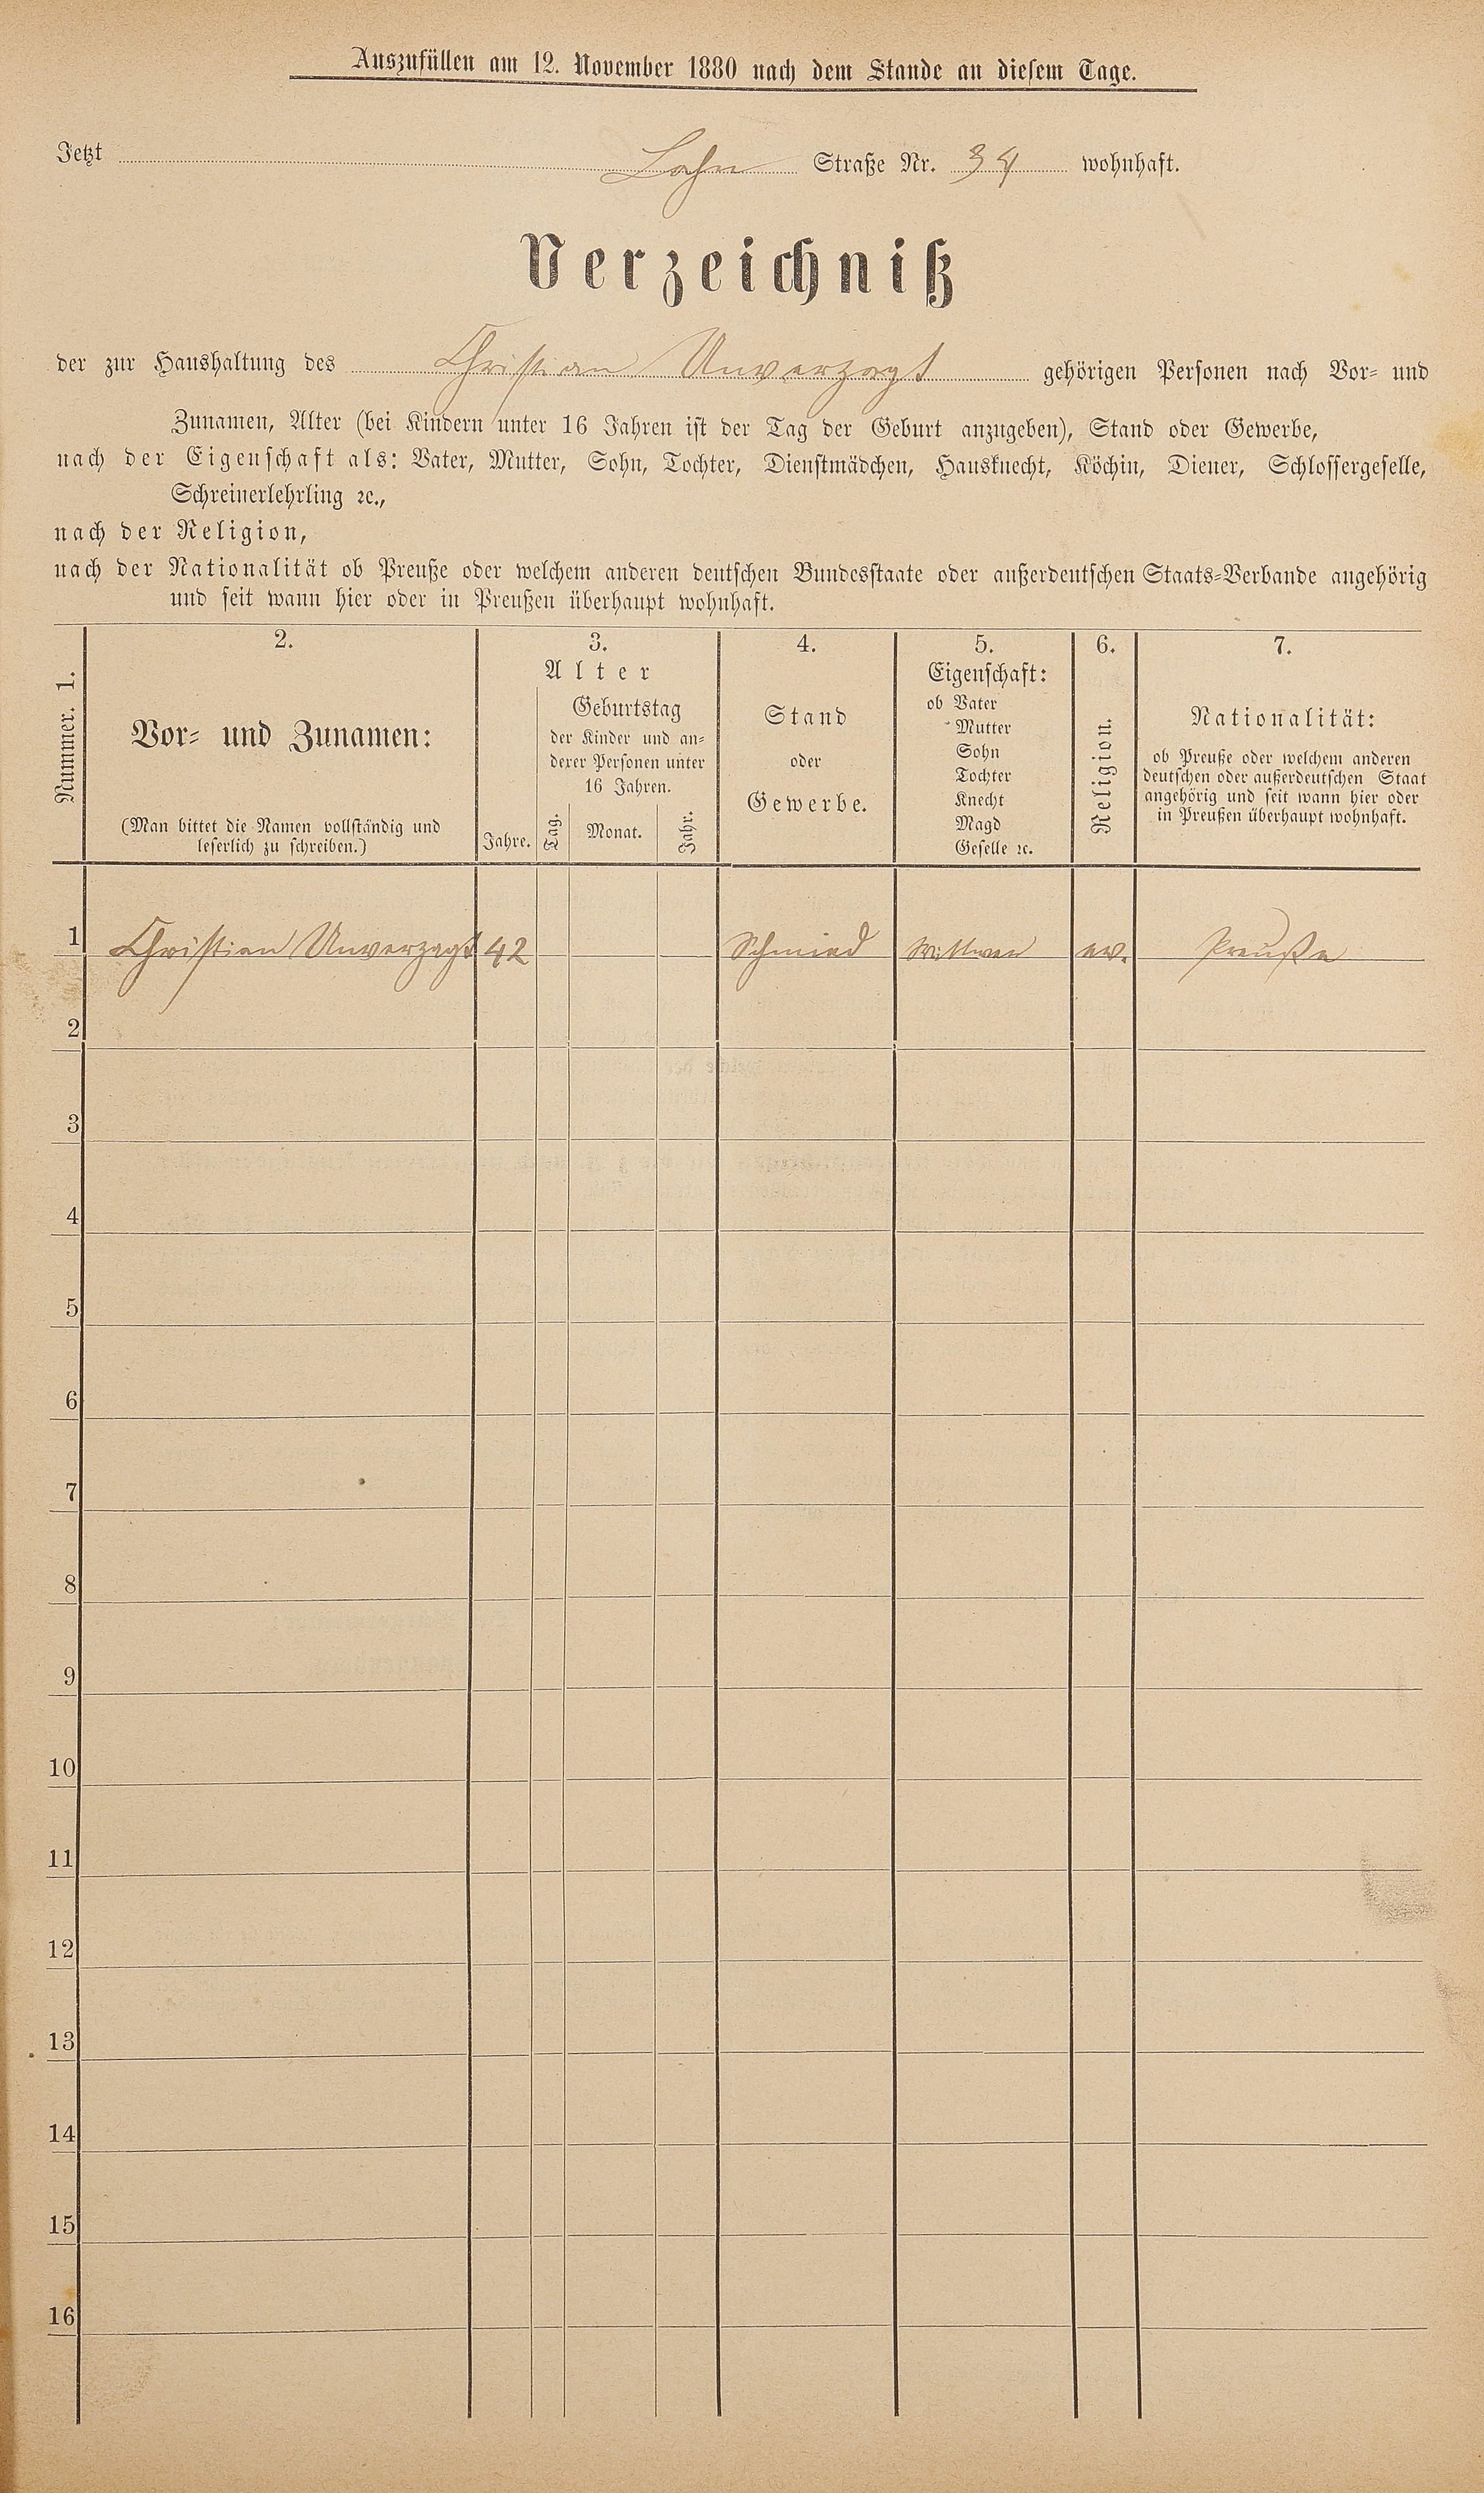 Auszufüllen am 12. November 1880 nach dem Stande an diesem Tage.
Jetzt Lahn Straße Nr. 34 wohnhaft.
Verzeichniß
der zur Haushaltung des Christian Unverzagt gehörigen Personen nach Vor- und
Zunamen, Alter (bei Kindern unter 16 Jahren ist der Tag der Geburt anzugeben), Stand oder Gewerbe,
nach der Eigenschaft als: Vater, Mutter, Sohn, Tochter, Dienstmädchen, Hausknecht, Köchin, Diener, Schlossergeselle,
Schreinerlehrling ꝛc.,
nach der Religion,
nach der Nationalität ob Preuße oder welchem anderen deutschen Bundesstaate oder außerdeutschen Staats-Verbande angehörig
und seit wann hier oder in Preußen überhaupt wohnhaft.
Nummer. 1.
2.
Vor- und Zunamen:
(Man bittet die Namen vollständig und
leserlich zu schreiben.)
3.
Alter
Jahre.
Geburtstag
der Kinder und an-
derer Personen unter
16 Jahren.
Tag.
Monat.
Jahr.
4.
Stand
oder
Gewerbe.
5.
Eigenschaft:
ob Vater
Mutter
Sohn
Tochter
Knecht
Magd
Geselle ꝛc.
6.
Religion.
7.
Nationalität:
ob Preuße oder welchem anderen
deutschen oder außerdeutschen Staat
angehörig und seit wann hier oder
in Preußen überhaupt wohnhaft.
1 Christian Unverzagt 42 Schmied Wittwer ev. Preuße
2
3
4
5
6
7
8
9
10
11
12
13
14
15
16